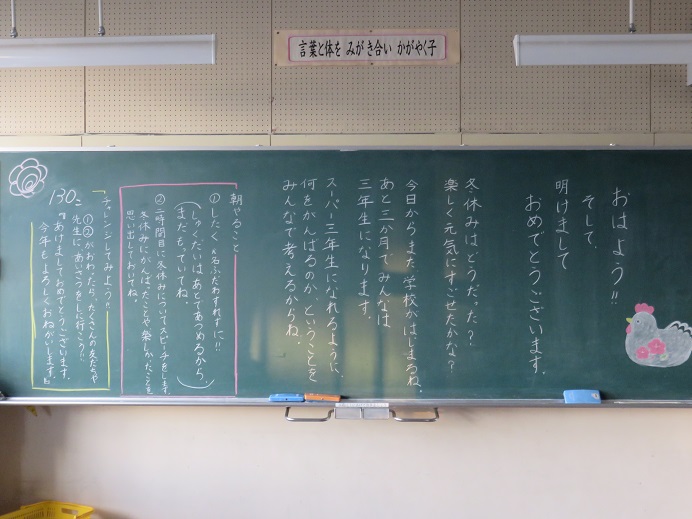 言葉と体を みがき合い かがやく子
おはよう!!
そして、
明けまして
おめでとうございます。
冬休みはどうだった?
楽しく元気にすごせたかな?
今日からまた学校がはじまるね。
あと三か月で みんなは
三年生になります。
スーパー三年生になれるように、
何をがんばるのか、ということを
みんなで考えるからね。
朝やること
①したく(名ふだわすれずに!!)
(しゅくだいはあとであつめるから、
まだもっていてね。)
②二時間目に冬休みについてスピーチをします。
冬休みにがんばったことや楽しかったことを
思い出しておいてね。
チャレンジしてみよう!!
①②がおわったら、たくさんの友だちや
先生に あいさつをしに行こう!!
『あけましておめでとうございます。
今年もよろしくおねがいします。』
130